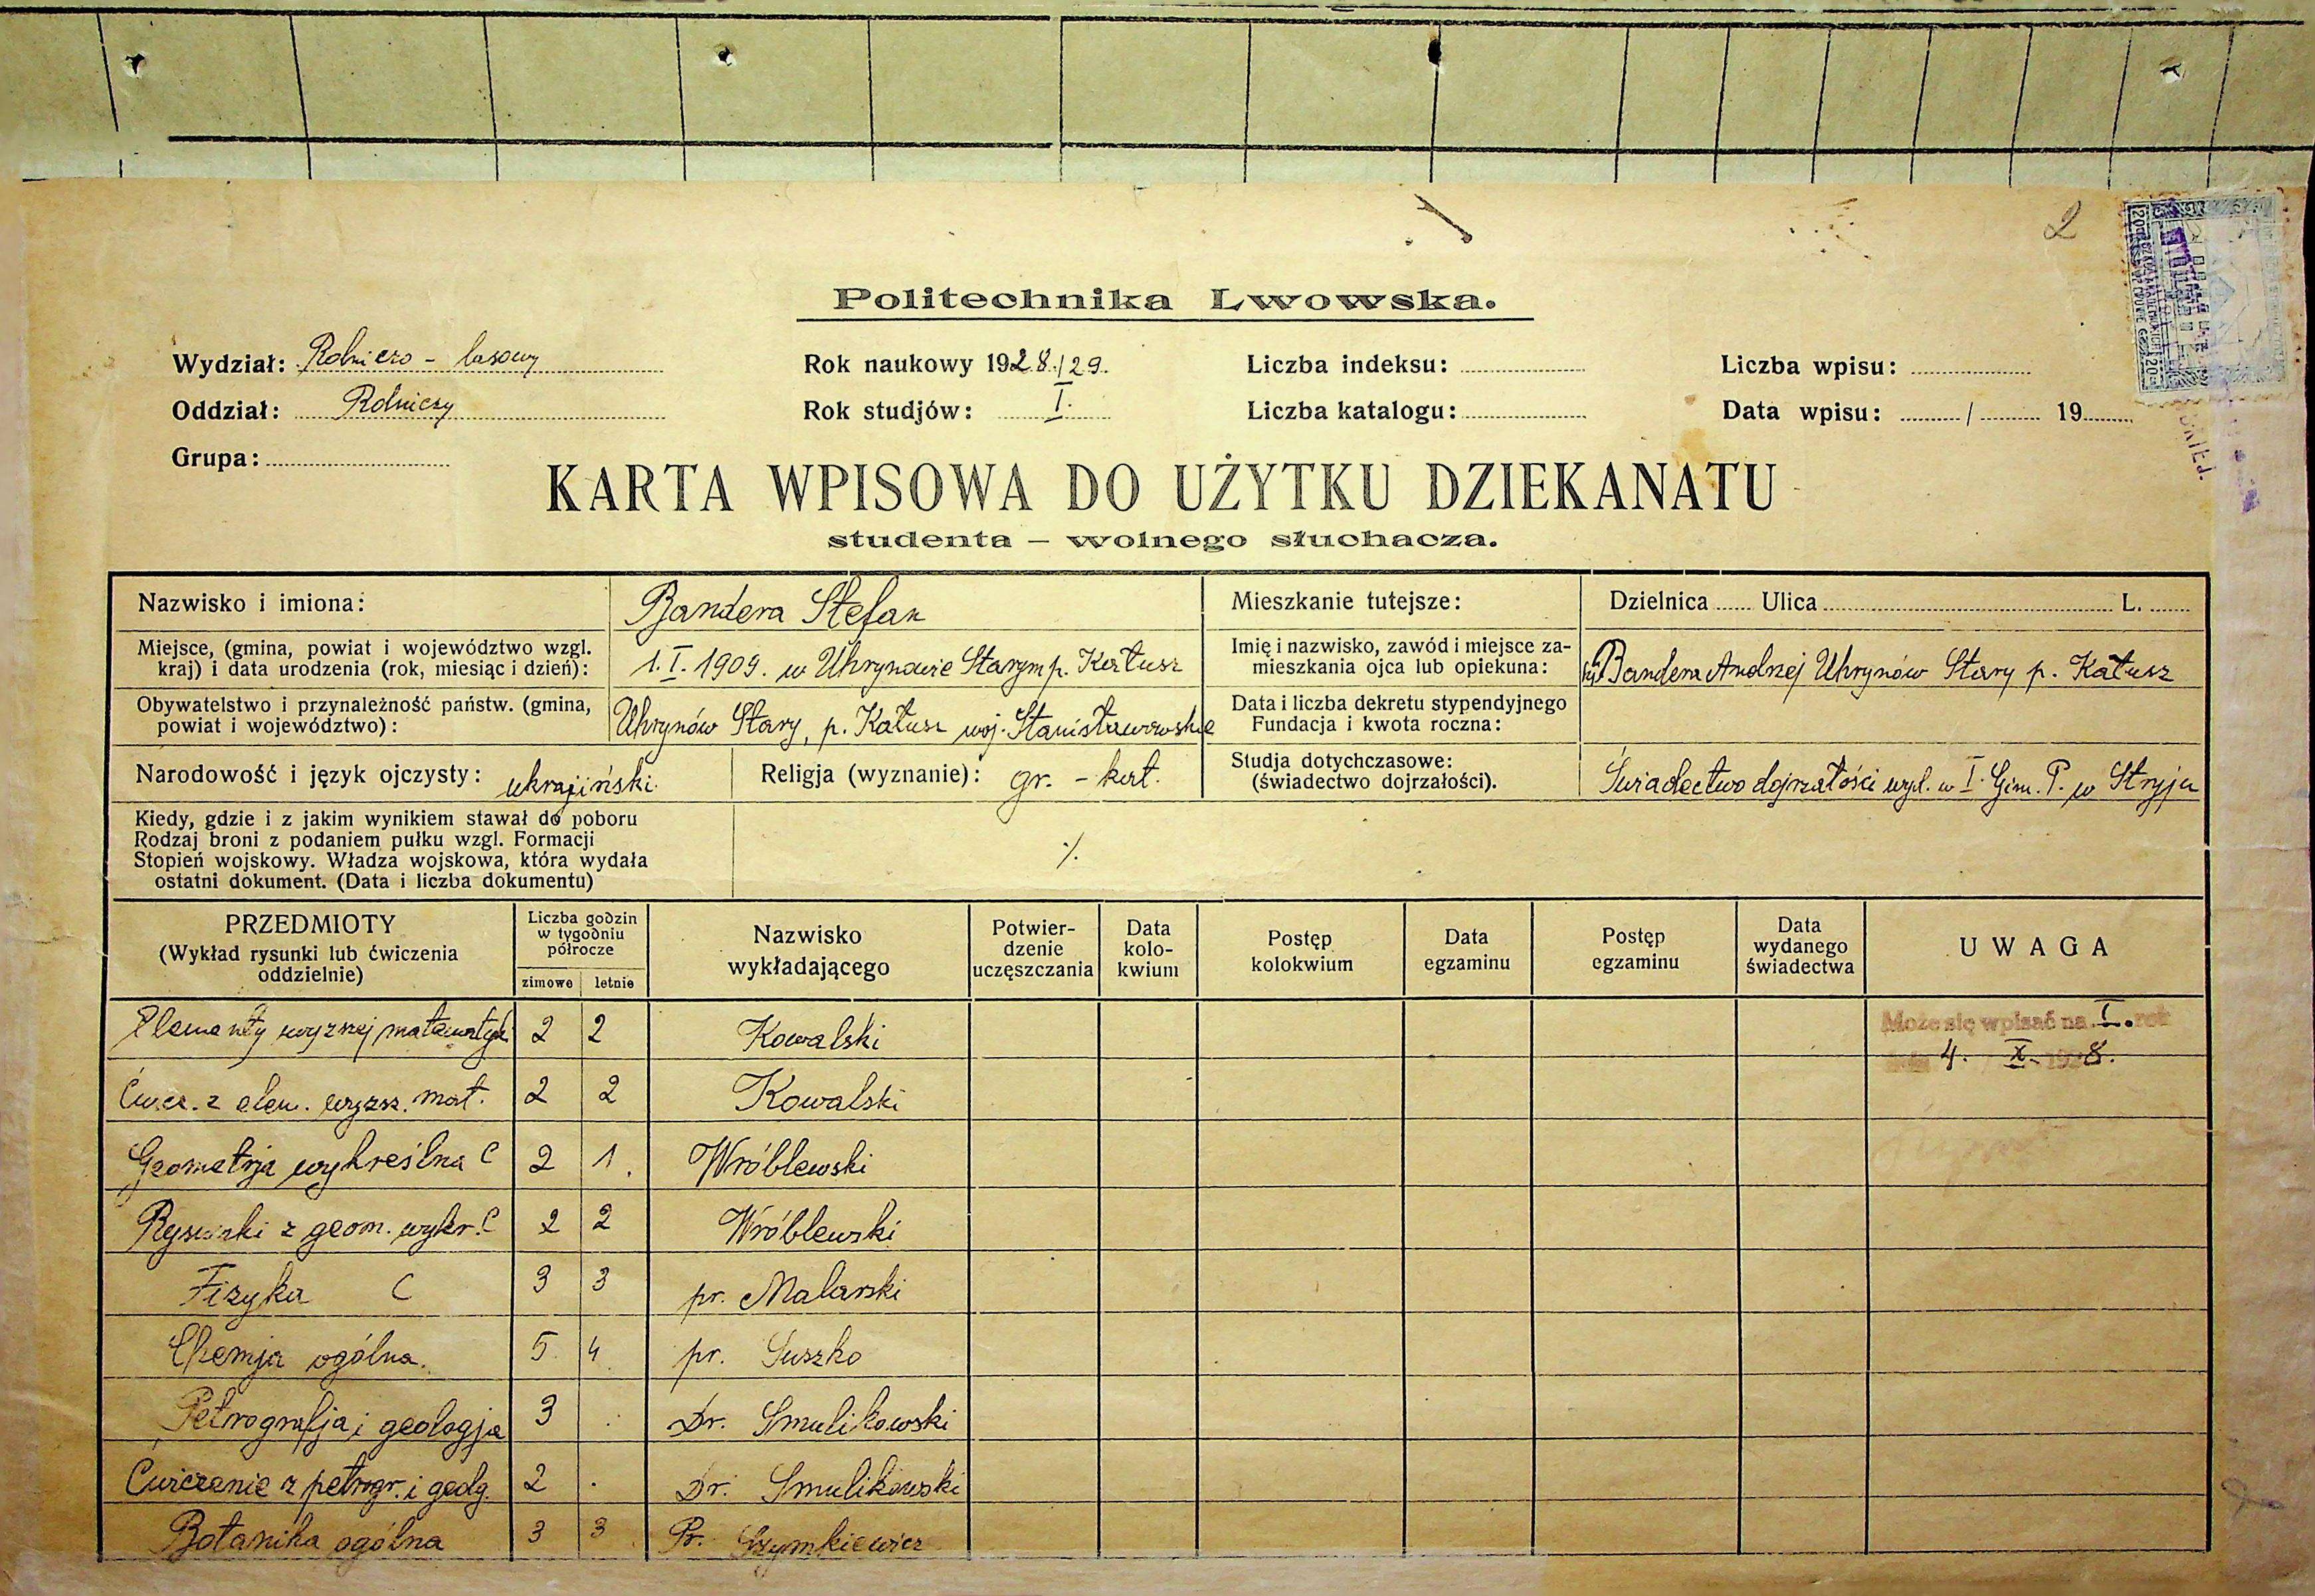 2
Politechnika Lwowska.
Wydział: Rolniczo - lasowy
Rok naukowy 1928/29.
Liczba indeksu:
Liczba wpisu:
Oddział: Rolniczy
Rok studjów: I.
Liczba katalogu:
Data wpisu: / 19
Grupa:
KARTA WPISOWA DO UŻYTKU DZIEKANATU
studenta – wolnego słuchacza.
Nazwisko i imiona: Bandera Stefan
Mieszkanie tutejsze: Dzielnica Ulica L.
Miejsce, (gmina, powiat i województwo wzgl.
kraj) i data urodzenia (rok, miesiąc i dzień):
1. I. 1909. w Uhrynowie Starym p. Kałusz
Imię i nazwisko, zawód i miejsce za-
mieszkania ojca lub opiekuna:
Bandera Andrzej Uhrynów Stary p. Kałusz
Obywatelstwo i przynależność państw. (gmina,
powiat i województwo):
Uhrynów Stary, p. Kałusz woj. Stanisławowskie
Data i liczba dekretu stypendyjnego
Fundacja i kwota roczna:
Narodowość i język ojczysty: ukrajiński
Religja (wyznanie): gr. - kat.
Studja dotychczasowe:
(świadectwo dojrzałości).
Świadectwo dojrzałości wyd. w I. Gim. P. w Stryju
Kiedy, gdzie i z jakim wynikiem stawał do poboru
Rodzaj broni z podaniem pułku wzgl. Formacji
Stopień wojskowy. Władza wojskowa, która wydała
ostatni dokument. (Data i liczba dokumentu)
PRZEDMIOTY
(Wykład rysunki lub ćwiczenia
oddzielnie)
Liczba godzin
w tygodniu
półrocze
zimowe letnie
Nazwisko
wykładającego
Potwier-
dzenie
uczęszczania
Data
kolo-
kwium
Postęp
kolokwium
Data
egzaminu
Postęp
egzaminu
Data
wydanego
świadectwa
UWAGA
Elementy wyższej matematyki 2 2 Kowalski
Może się wpisać na I. rok
4. X. 1928.
Ćwicz. z elem. wyższ. mat. 2 2 Kowalski
Geometrja wykreślna C 2 1. Wróblewski
Rysunki z geom. wykr. C 2 2 Wróblewski
Fizyka C 3 3 pr. Malarski
Chemja ogólna. 5 4 pr. Suszko
Petrografja i geologja 3 . Dr. Smulikowski
Ćwiczenie z petrogr. i geolg. 2 . Dr. Smulikowski
Botanika ogólna 3 3 Pr. Szymkiewicz